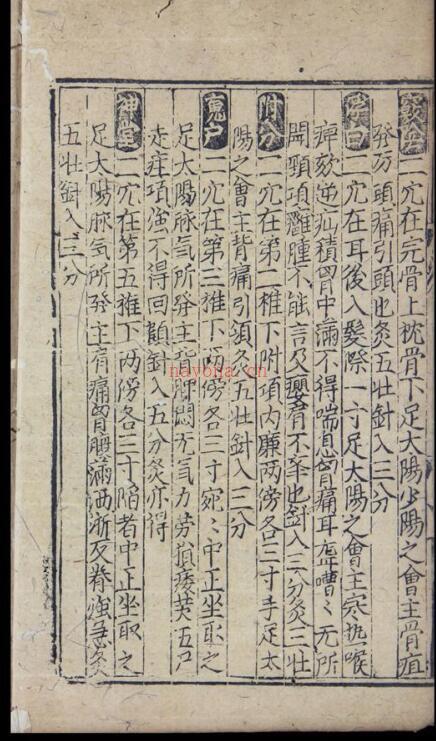 竅陰二穴在完骨上枕骨下足太陽少陽之會主骨疽
發歷頭痛引頭也灸五壯針入三分
浮白二穴在耳後入髮際一寸足太陽之會主寒熱喉
痺欬逆疝積胷中滿不得喘息胷痛耳聾嘈〻无所
聞頸項癰腫不能言及癭肩不舉也針入三分灸三壯
附分二穴在第二椎下附項內廉兩傍各三寸手足太
陽之會主背痛引頭灸五壯針入三分
魂戶二穴在第三椎下兩傍各三寸宛〻中正坐取之
足太陽脉气所發主背胛悶无氣力勞損痿黃五尸
走疰項強不得回顧針入五分灸亦得
神堂二穴在第五椎下兩傍各三寸陷者中正坐取之
足太陽脉气所發主肩痛胷腹滿洒淅反脊強急灸
五壯針入三分
nayona.cn